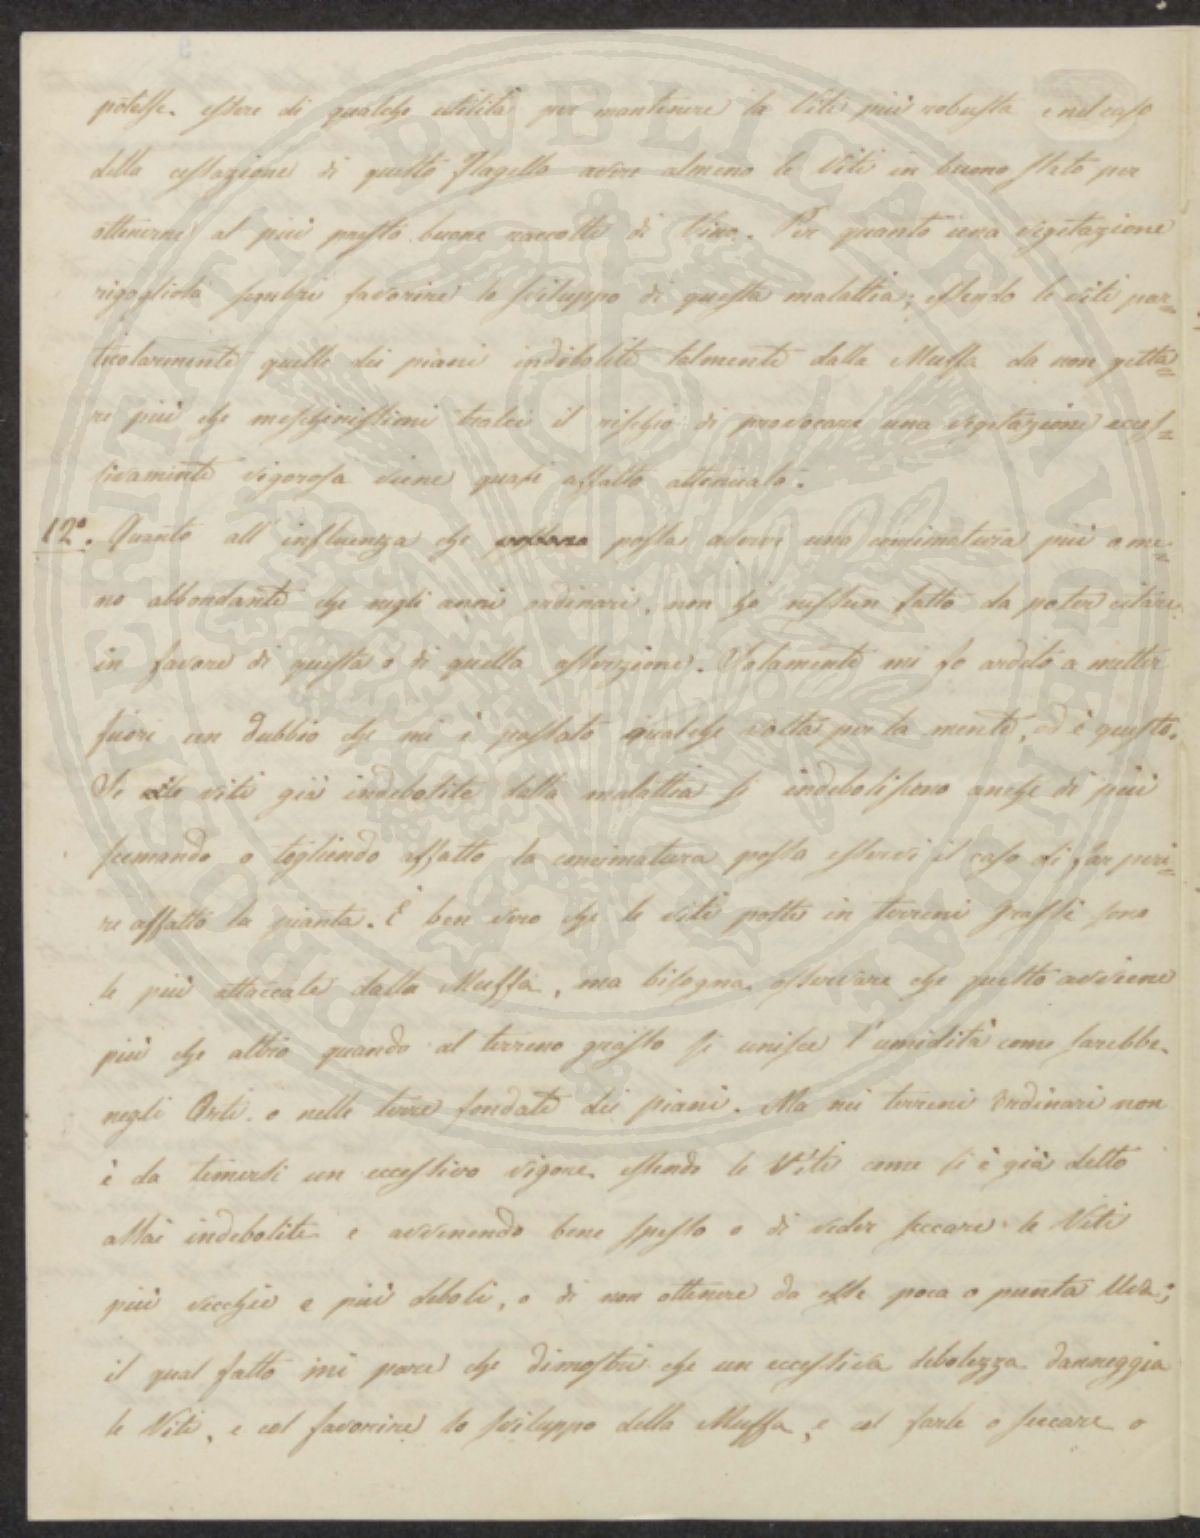 potesse essere di qualche utilità per mantenere la Vite più robusta e nel caso
della cessazione di questo Flagello avere almeno le Viti in buono stato per
ottenerne al più presto buone raccolte di Vino. Per quanto una vegetazione
rigogliosa sembri favorire lo sviluppo di questa malattia; essendo le viti par=
ticolarmente quelle dei piani indebolite talmente dalla Muffa da non getta=
re più che meschinissimi tralci il rischio di provocare una vegetazione ecces=
sivamente vigorosa viene quasi affatto attenuato.
12°. Quanto all'influenza che possa avere una concimatura più o me=
no abbondante che negli anni ordinari, non ho nessun fatto da poter citare
in favore di questa o di quella asserzione. Solamente mi fo ardito a metter
fuori un dubbio che mi è passato qualche volta per la mente, ed è questo.
Se le viti già indebolite dalla malattia si indeboliscono anche di più
scemando o togliendo affatto la concimatura possa esservi il caso di far peri=
re affatto la pianta. È ben vero che le viti poste in terreni grassi sono
le più attaccate dalla Muffa, ma bisogna osservare che questo avviene
più che altro quando al terreno grasso si unisce l'umidità come sarebbe
negli Orti o nelle terre fondate dei piani. Ma nei terreni ordinari non
è da temersi un eccessivo vigore essendo le Viti come si è già detto
assai indebolite e avvenendo bene spesso o di veder seccare le Viti
più vecchie e più deboli, o di non ottenere da esse poca o punta Uva;
il qual fatto mi pare che dimostri che un eccessiva debolezza danneggia
le Viti, e col favorire lo sviluppo della Muffa, e col farle o seccare o